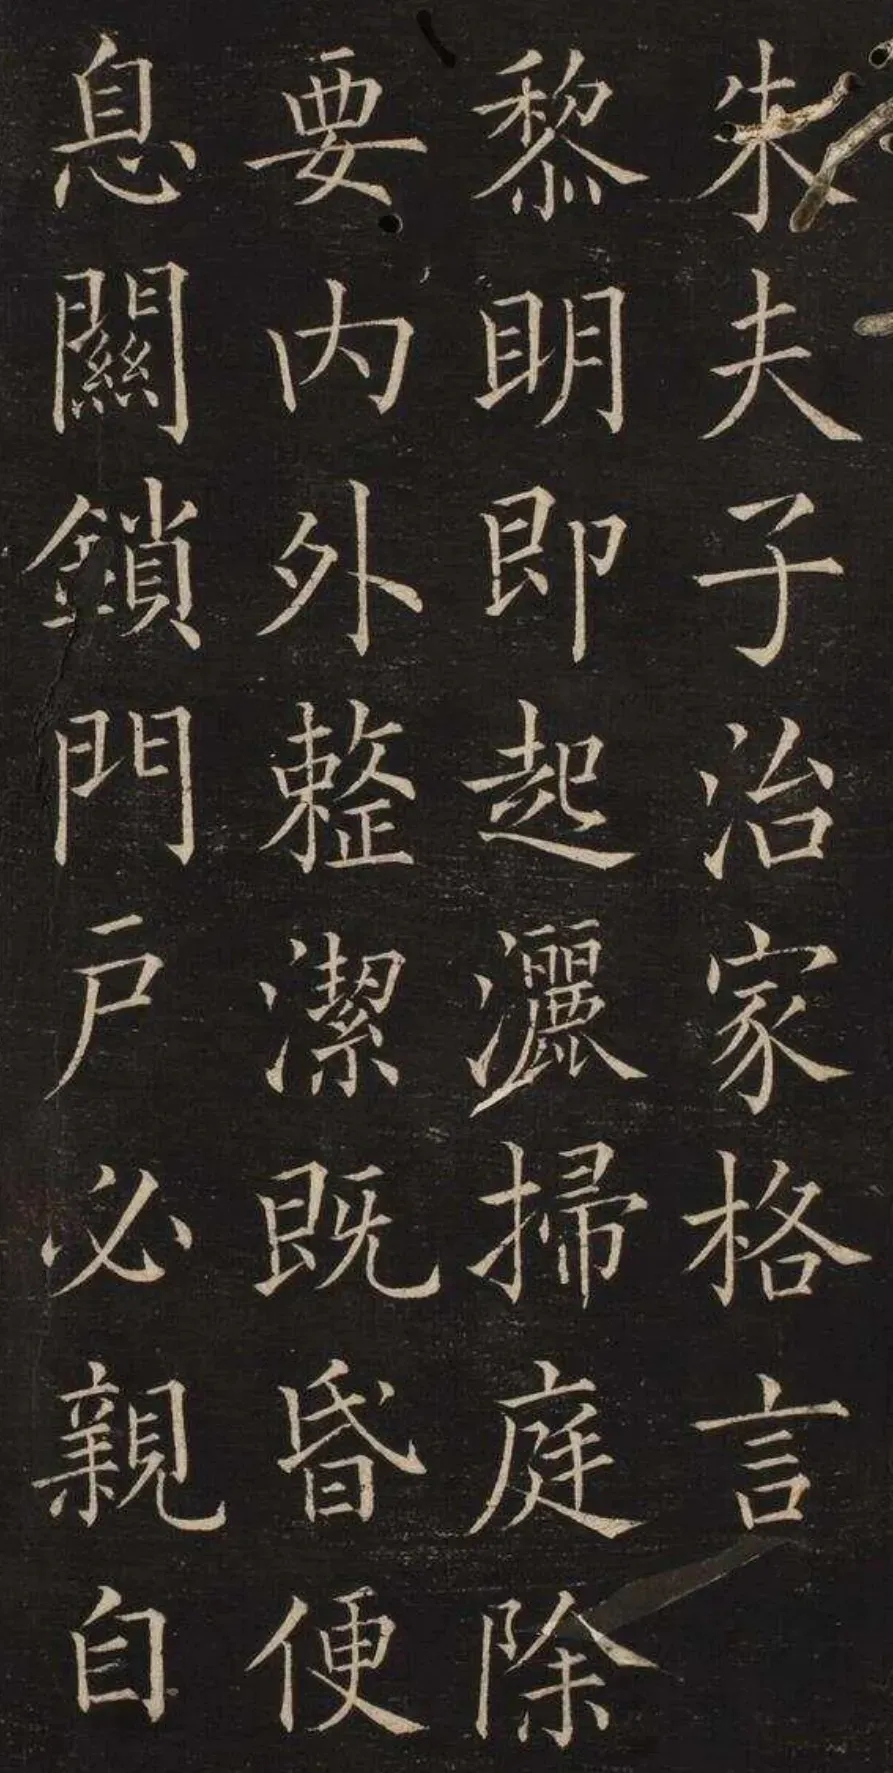 朱夫子治家格言
黎明即起灑掃庭除
要内外整潔既昏便
息關鎖門戸必親自